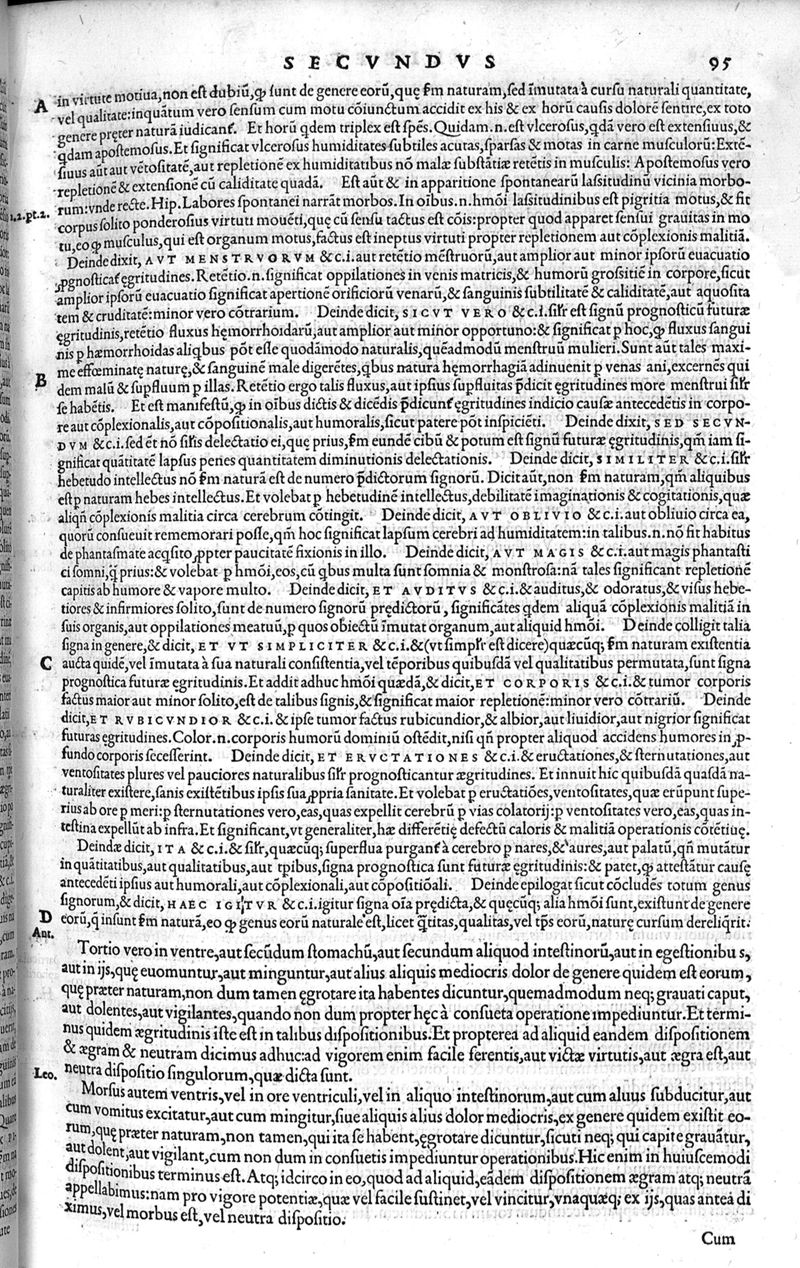 SECVNDVS 95
A in virtute motiua,non est dubiū,ꝙ sunt de genere eorū,quę ẜm naturam,sed īmutata à cursu naturali quantitate,
vel qualitate:inquātum vero sensum cum motu cōiunctum accidit ex his & ex horū causis dolorē sentire,ex toto
genere pręter naturā iudicanť. Et horū qdem triplex est spēs. Quidam.n.est vlcerosus,qdā vero est extensiuus,&
qdam apostemosus.Et significat vlcerosus humiditates subtiles acutas,sparsas & motas in carne musculorū:Extē-
siuus aūt aut vētositatē,aut repletionē ex humiditatibus nō malæ substātiæ retētis in musculis: Apostemosus vero
repletionē & extensionē cū caliditate quadā. Est aūt & in apparitione spontanearū lassitudinū vicinia morbo-
1.2.pt.2. rum:vnde recte.Hip.Labores spontanei narrāt morbos. In oībus.n.hmōi lassitudinibus est pigritia motus,& fit
corpus solito ponderosius virtuti mouēti,quę cū sensu tactus est cōis:propter quod apparet sensui grauitas in mo
tu,eo ꝙ musculus,qui est organum motus,factus est ineptus virtuti propter repletionem aut cōplexionis malitiā.
Deinde dixit, AVT MENSTRVORVM &c.i.aut retētio mēstruorū,aut amplior aut minor ipsorū euacuatio
ꝓgnosticať ęgritudines.Retētio.n.significat oppilationes in venis matricis,& humorū grossitiē in corpore,sicut
amplior ipsorū euacuatio significat apertionē orificiorū venarū,& sanguinis subtilitatē & caliditatē,aut aquosita
tem & cruditatē:minor vero cōtrarium. Deinde dicit, SICVT VERO &c.i.siľr est signū prognosticū futuræ
ęgritudinis,retētio fluxus hęmorrhoidarū,aut amplior aut minor opportuno:& significat p hoc,ꝙ fluxus sangui
nis p hæmorrhoidas aliqbus pōt esse quodāmodo naturalis,quēadmodū menstruū mulieri.Sunt aūt tales maxi-
me effœminatę naturę,& sanguinē male digerētes,qbus natura hęmorrhagiā adinuenit p venas ani,excernēs qui
B dem malū & supfluum p illas.Retētio ergo talis fluxus,aut ipsius supfluitas p̄dicit ęgritudines more menstrui siľr
se habētis. Et est manifestū,ꝙ in oībus dictis & dicēdis p̄dicunť ęgritudines indicio causæ antecedētis in corpo-
re aut cōplexionalis,aut cōpositionalis,aut humoralis,sicut patere pōt inspiciēti. Deinde dixit, SED SECVN-
DVM &c.i.sed ēt nō siľis delectatio ei,quę prius,ẜm eundē cibū & potum est signū futuræ ęgritudinis,qm̄ iam si-
gnificat quātitatē lapsus penes quantitatem diminutionis delectationis. Deinde dicit, SIMILITER &c.i.siľr
hebetudo intellectus nō ẜm naturā est de numero p̄dictorum signorū. Dicit aūt,non ẜm naturam,qm̄ aliquibus
est p naturam hebes intellectus.Et volebat p hebetudinē intellectus,debilitatē imaginationis & cogitationis,quæ
aliqñ cōplexionis malitia circa cerebrum cōtingit. Deinde dicit, AVT OBLIVIO &c.i.aut obliuio circa ea,
quorū consueuit rememorari posse,qm̄ hoc significat lapsum cerebri ad humiditatem:in talibus.n.nō fit habitus
de phantasmate acqsito ꝓpter paucitatē fixionis in illo. Deinde dicit, AVT MAGIS &c.i.aut magis phantasti
ci somni,q̄ prius:& volebat p hmōi,eos,cū qbus multa sunt somnia & monstrosa:nā tales significant repletionē
capitis ab humore & vapore multo. Deinde dicit, ET AVDITVS &c.i.& auditus,& odoratus,& visus hebe-
tiores & infirmiores solito,sunt de numero signorū prędictorū, significātes qdem aliquā cōplexionis malitiā in
suis organis,aut oppilationes meatuū,p quos obiectū īmutat organum,aut aliquid hmōi. Deinde colligit talia
signa in genere,& dicit, ET VT SIMPLICITER &c.i.&(vt simpľr est dicere)quæcūq; ẜm naturam existentia
C aucta quidē,vel īmutata à sua naturali consistentia,vel tēporibus quibusdā vel qualitatibus permutata,sunt signa
prognostica futuræ ęgritudinis.Et addit adhuc hmōi quædā,& dicit,ET CORPORIS &c.i.& tumor corporis
factus maior aut minor solito,est de talibus signis,& significat maior repletionē:minor vero cōtrariū. Deinde
dicit,ET RVBICVNDIOR &c.i.& ipse tumor factus rubicundior,& albior,aut liuidior,aut nigrior significat
futuras egritudines.Color.n.corporis humorū dominiū ostēdit,nisi qñ propter aliquod accidens humores in ꝓ-
fundo corporis secesserint. Deinde dicit, ET ERVCTATIONES &c.i.& eructationes,& sternutationes,aut
ventositates plures vel pauciores naturalibus siľr prognosticantur ægritudines. Et innuit hic quibusdā quasdā na-
turaliter existere,sanis existētibus ipsis sua ꝓpria sanitate.Et volebat p eructatiōes,ventositates,quæ erūpunt supe-
rius ab ore p meri:p sternutationes vero,eas,quas expellit cerebrū p vias colatorij:p ventositates vero,eas,quas in-
testina expellūt ab infra.Et significant,vt generaliter,hæ differētię defectū caloris & malitiā operationis cōtētiuę.
Deindæ dicit, ITA &c.i.& siľr,quæcūq; superflua purganť à cerebro p nares,& aures,aut palatū,qñ mutātur
in quātitatibus,aut qualitatibus,aut tpibus,signa prognostica sunt futuræ ęgritudinis:& patet,ꝙ attestātur causę
antecedēti ipsius aut humorali,aut cōplexionali,aut cōpositiōali. Deinde epilogat sicut cōcludēs totum genus
signorum,& dicit, HAEC IGITVR &c.i.igitur signa oīa prędicta,& quęcūq; alia hmōi sunt,existunt de genere
D eorū,q̄ insunt ẜm naturā,eo ꝙ genus eorū naturale est,licet q̄titas,qualitas,vel tp̄s eorū,naturę cursum dereliq̄rit.
Ant. Tortio vero in ventre,aut secūdum stomachū,aut secundum aliquod intestinorū,aut in egestionibus,
aut in ijs,quę euomuntur,aut minguntur,aut alius aliquis mediocris dolor de genere quidem est eorum,
quę præter naturam,non dum tamen ęgrotare ita habentes dicuntur,quemadmodum neq; grauati caput,
aut dolentes,aut vigilantes,quando non dum propter hęc à consueta operatione impediuntur.Et termi-
nus quidem ægritudinis iste est in talibus dispositionibus.Et propterea ad aliquid eandem dispositionem
& ægram & neutram dicimus adhuc:ad vigorem enim facile ferentis,aut victæ virtutis,aut ægra est,aut
neutra dispositio singulorum,quæ dicta sunt.
Leo. Morsus autem ventris,vel in ore ventriculi,vel in aliquo intestinorum,aut cum aluus subducitur,aut
cum vomitus excitatur,aut cum mingitur,siue aliquis alius dolor mediocris,ex genere quidem existit eo-
rum,quę præter naturam,non tamen,qui ita se habent,ęgrotare dicuntur,sicuti neq; qui capite grauātur,
aut dolent,aut vigilant,cum non dum in consuetis impediuntur operationibus.Hic enim in huiuscemodi
dispositionibus terminus est.Atq; idcirco in eo,quod ad aliquid,eādem dispositionem ægram atq; neutrā
appellabimus:nam pro vigore potentiæ,quæ vel facile sustinet,vel vincitur,vnaquæq; ex ijs,quas antea di
ximus,vel morbus est,vel neutra dispositio.
Cum